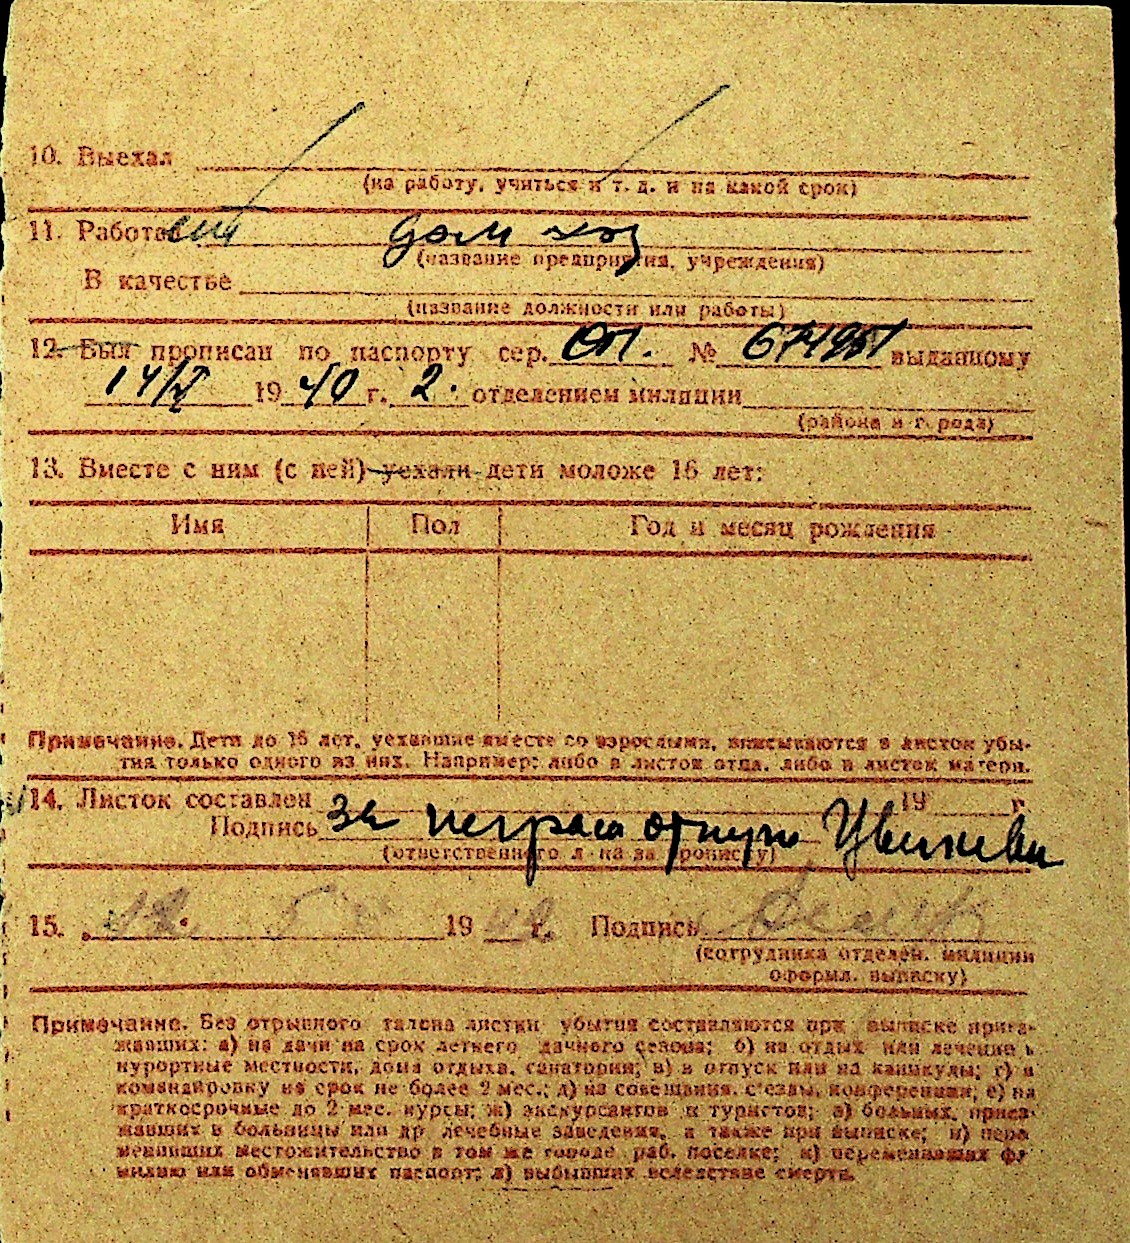 10. Выехал
(на работу, учиться и т. д. и на какой срок)
11. Работает дом хоз
(название предприятия, учреждения)
В качестве
(название должности или работы)
12. Был прописан по паспорту сер. № выданному
14/V 1940 г. 2. отделением милиции
(района и города)
13. Вместе с ним (с ней) уехали дети моложе 16 лет:
Имя Пол Год и месяц рождения
Примечание. Дети до 16 лет, уехавшие вместе со взрослыми, вписываются в листок убы-
тия только одного из них. Например: либо в листок отца, либо в листок матери.
14. Листок составлен 19 г.
Подпись за
(ответственного л-ца за прописку)
15. 19 42 г. Подпись
(сотрудника отделен. милиции
оформл. выписку)
Примечание. Без отрывного талона листки убытия составляются при выписке приез-
жавших: а) на дачи на срок летнего дачного сезона; б) на отдых или лечение в
курортные местности, дома отдыха, санатории; в) в отпуск или на каникулы; г) в
командировку на срок не более 2 мес.; д) на совещания, съезды, конференции; е) на
краткосрочные до 2 мес. курсы; ж) экскурсантов и туристов; з) больных, приез-
жавших в больницы или др лечебные заведения, а также при выписке; и) пере
менивших местожительство в том же городе раб. поселке; к) переменивших фа
милию или обменявших паспорт; л) выбывших вследствие смерти.